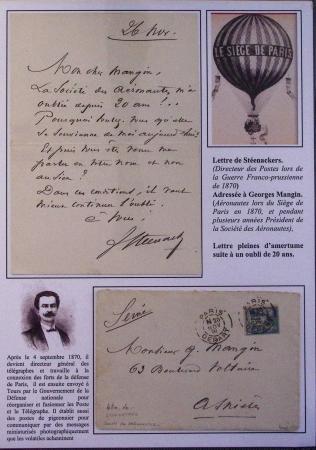 26 Nov.
Mon cher Mangin,
La Société des Aéronautes m'a
oubliée depuis 20 ans !..
Pourquoi
se souvienne de moi aujourd'hui ?
Et puis
parler en votre nom et non
au sien ?
Dans ces conditions, il vaut
mieux continuer l'oubli.
à vous,
Steenackers
LE SIÈGE DE PARIS
Lettre de Stéenackers.
(Directeur des Postes lors de
la Guerre Franco-prussienne
de 1870)
Adressée à Georges Mangin.
(Aéronautes lors du Siège de
Paris en 1870, et pendant
plusieurs années Président de
la Société des Aéronautes),
Lettre pleines d'amertume
suite à un oubli de 20 ans.
Après le 4 septembre 1870, il
devient directeur général des
télégraphes et travaille à la
connexion des forts de la défense
de Paris, il est ensuite envoyé à
Tours par le Gouvernement de la
Défense nationale pour
réorganiser et fusionner les Poste
et le Télégraphe. Il établit aussi
des postes de pigeonnier pour
communiquer par des messages
miniaturisés photographiquement
que les volatiles acheminent
Seine
PARIS
DEPART
Monsieur G. Mangin
63 Boulevard Voltaire
Asnières